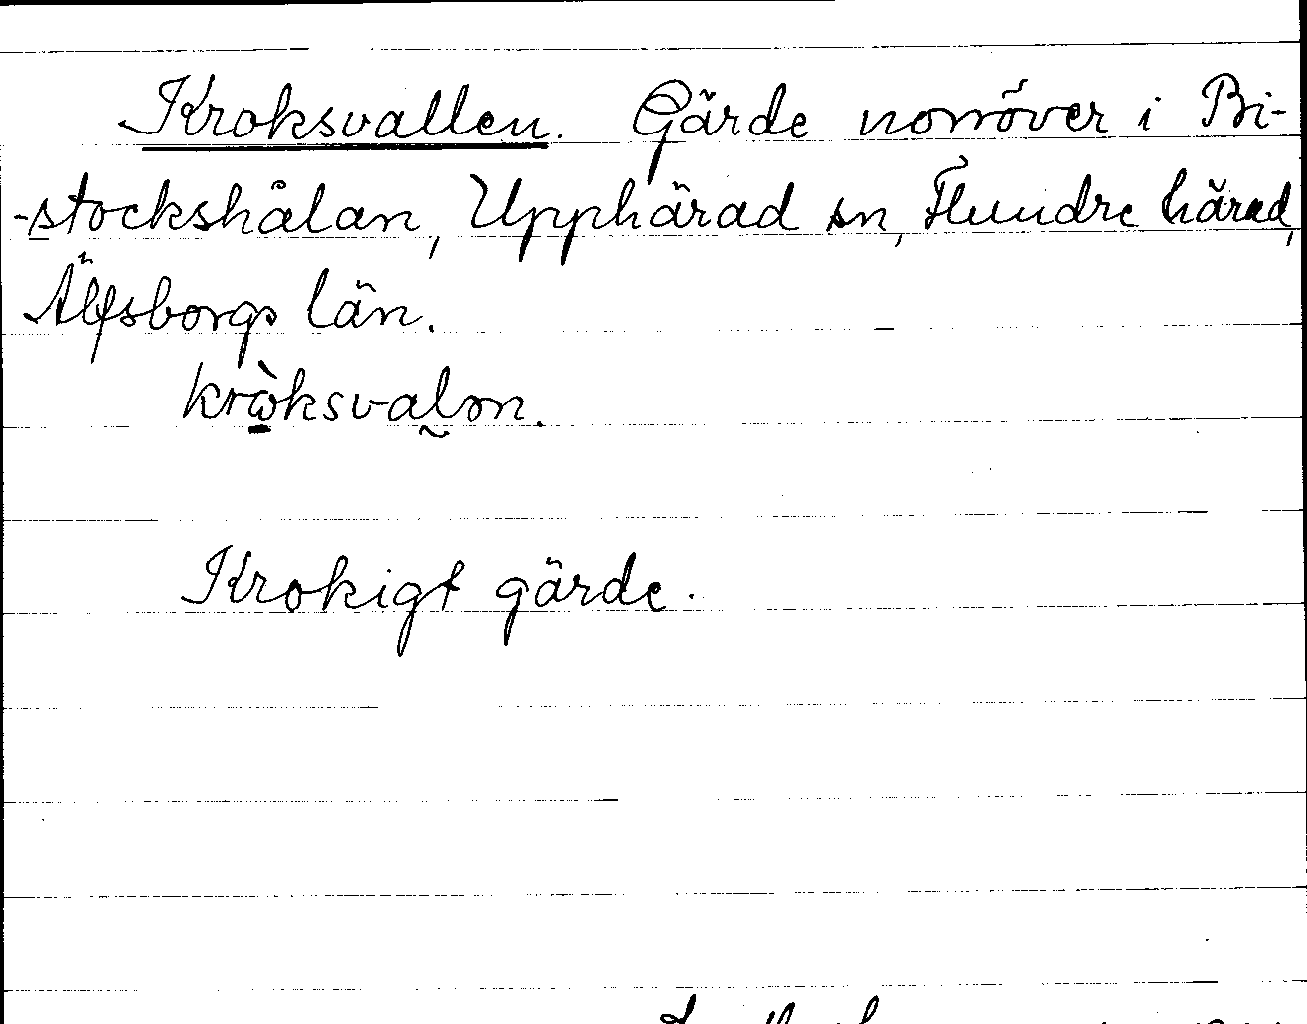 Kroksvallen. Gärde norröver i Bi-
-stockshålan, Upphärad sn, Flundre härad,
Älfsborgs län.
kròksvalon.
Krokigt gärde.